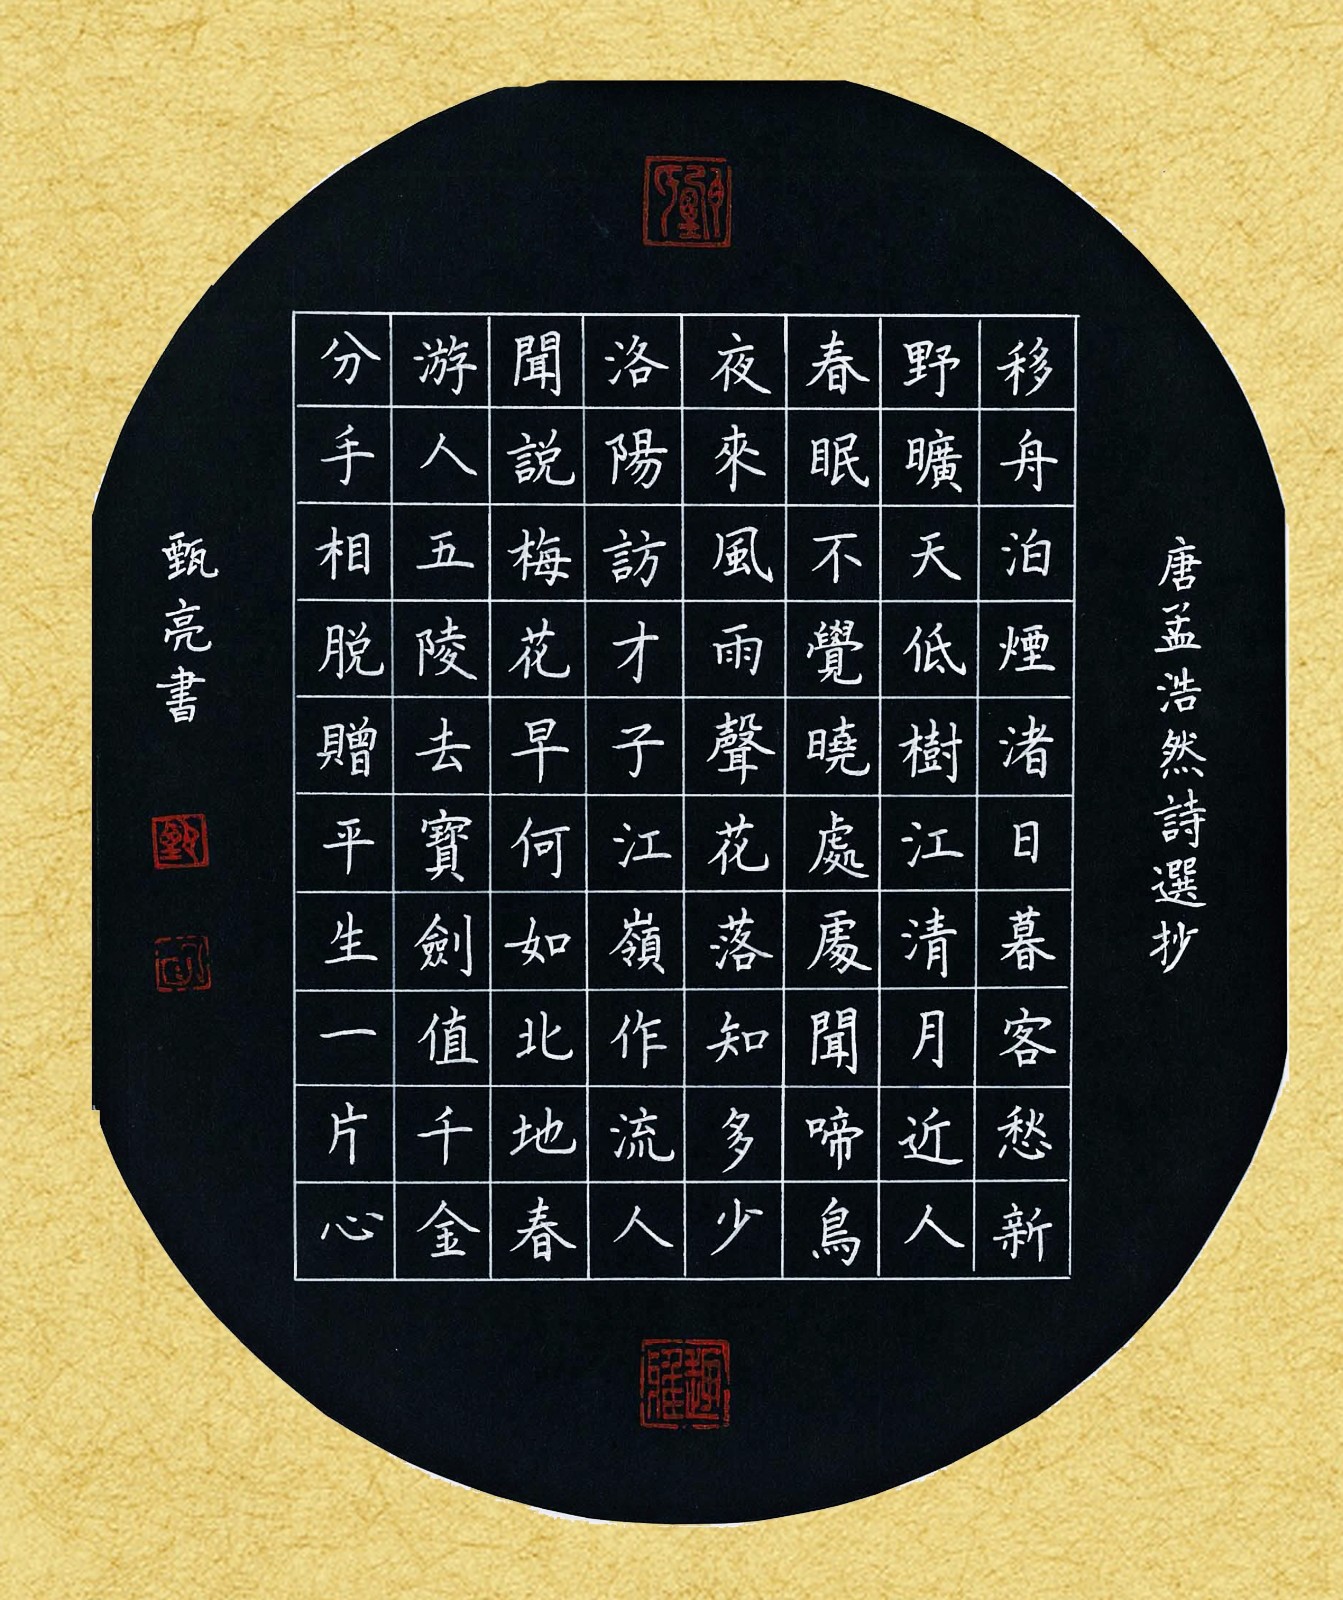 唐孟浩然詩選抄
移舟泊煙渚日暮客愁新
野曠天低樹江清月近人
春眠不覺曉處處聞啼鳥
夜來風雨聲花落知多少
洛陽訪才子江嶺作流人
聞説梅花早何如北地春
游人五陵去寶劍值千金
分手相脱贈平生一片心
甄亮書